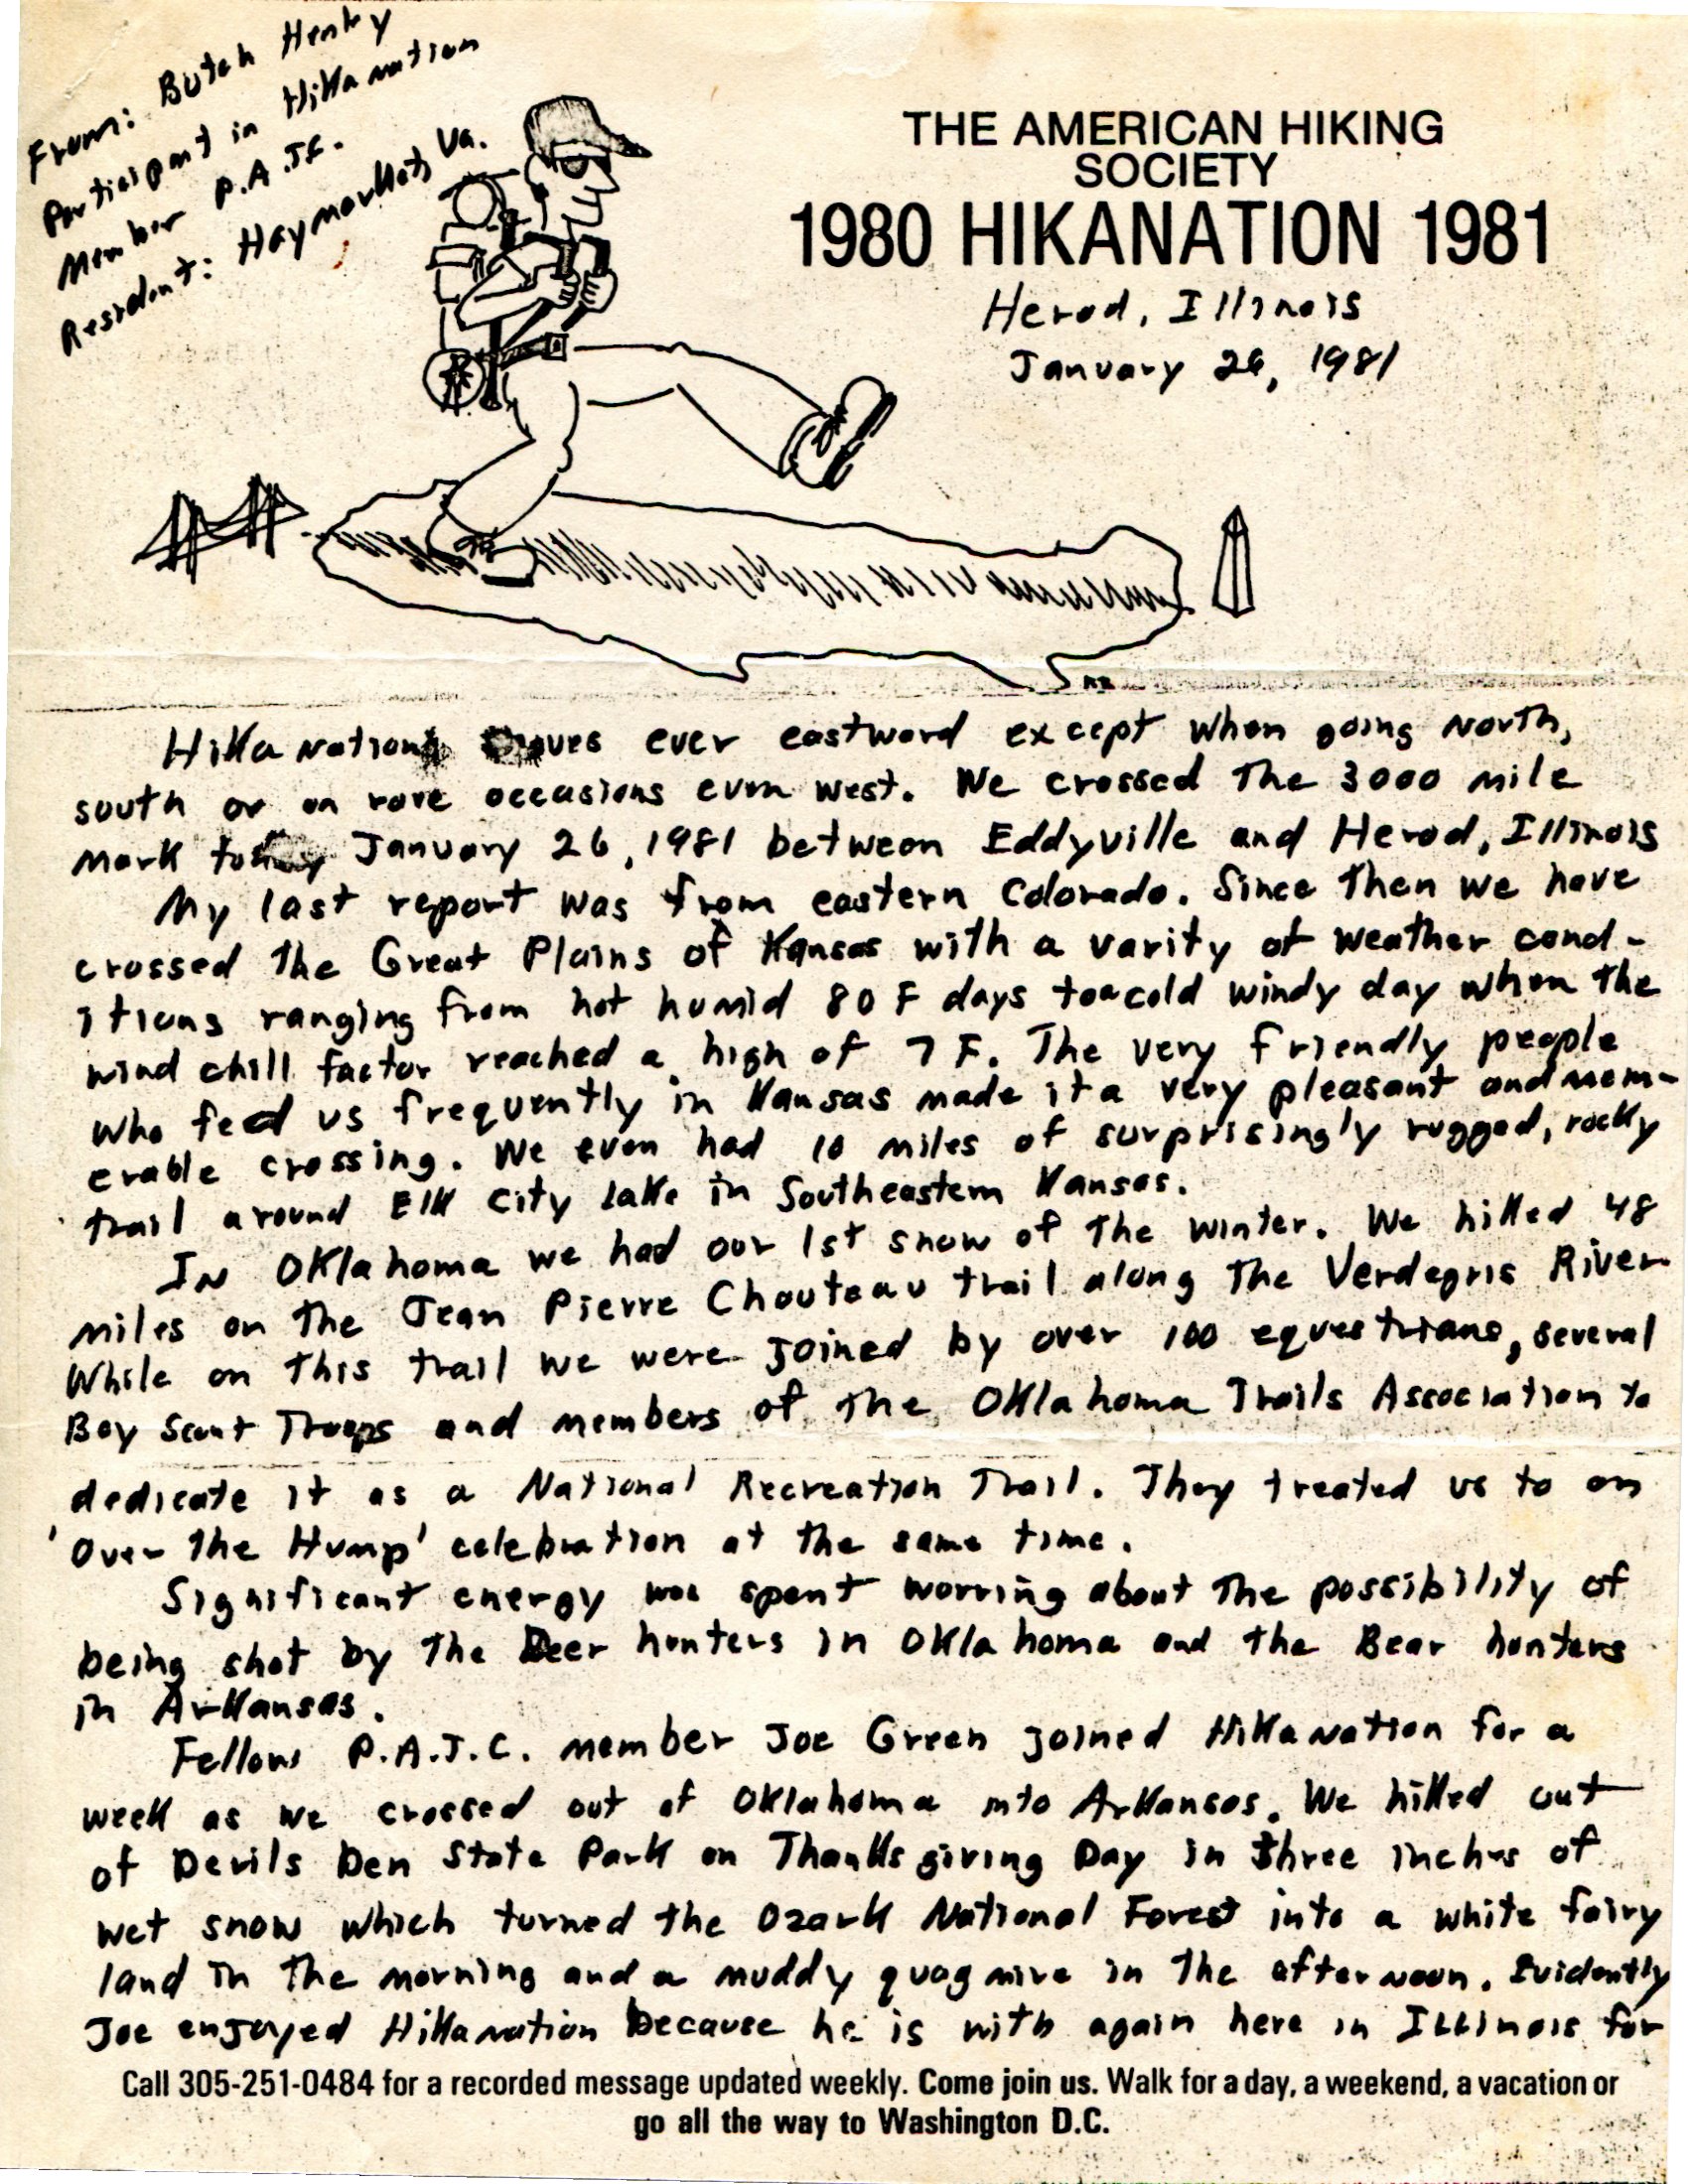 From: Butch Henley
Participant in HikaNation
Member P.A.J.C.
Resident: Haymarket, Va.
THE AMERICAN HIKING
SOCIETY
1980 HIKANATION 1981
Herod, Illinois
January 26, 1981
HikaNation moves ever eastward except when going North,
south or on rare occasions even west. We crossed the 3000 mile
mark today January 26, 1981 between Eddyville and Herod, Illinois
My last report was from eastern Colorado. Since then we have
crossed the Great Plains of Kansas with a varity of weather cond-
itions ranging from hot humid 80 F days to a cold windy day when the
wind chill factor reached a high of 7 F. The very friendly people
who feed us frequently in Kansas made it a very pleasant and mem-
erable crossing. We even had 10 miles of surprisingly rugged, rocky
trail around Elk City Lake in Southeastern Kansas.
In Oklahoma we had our 1st snow of the winter. We hiked 48
miles on the Jean Pierre Chouteau trail along the Verdegris River
While on this trail we were joined by over 100 equestrians, several
Boy Scout Troops and members of the Oklahoma Trails Association to
dedicate it as a National Recreation Trail. They treated us to an
'Over the Hump' celebration at the same time.
Significant energy was spent worring about the possibility of
being shot by the Deer hunters in Oklahoma and the Bear hunters
in Arkansas.
Fellow P.A.J.C. member Joe Green joined HikaNation for a
week as we crossed out of Oklahoma into Arkansas. We hiked out
of Devils Den State Park on Thanksgiving Day in three inches of
wet snow which turned the Ozark National Forest into a white fairy
land in the morning and a muddy quagmire in the afternoon. Evidently
Joe enjoyed HikaNation because he is with again here in Illinois for
Call 305-251-0484 for a recorded message updated weekly. Come join us. Walk for a day, a weekend, a vacation or
go all the way to Washington D.C.